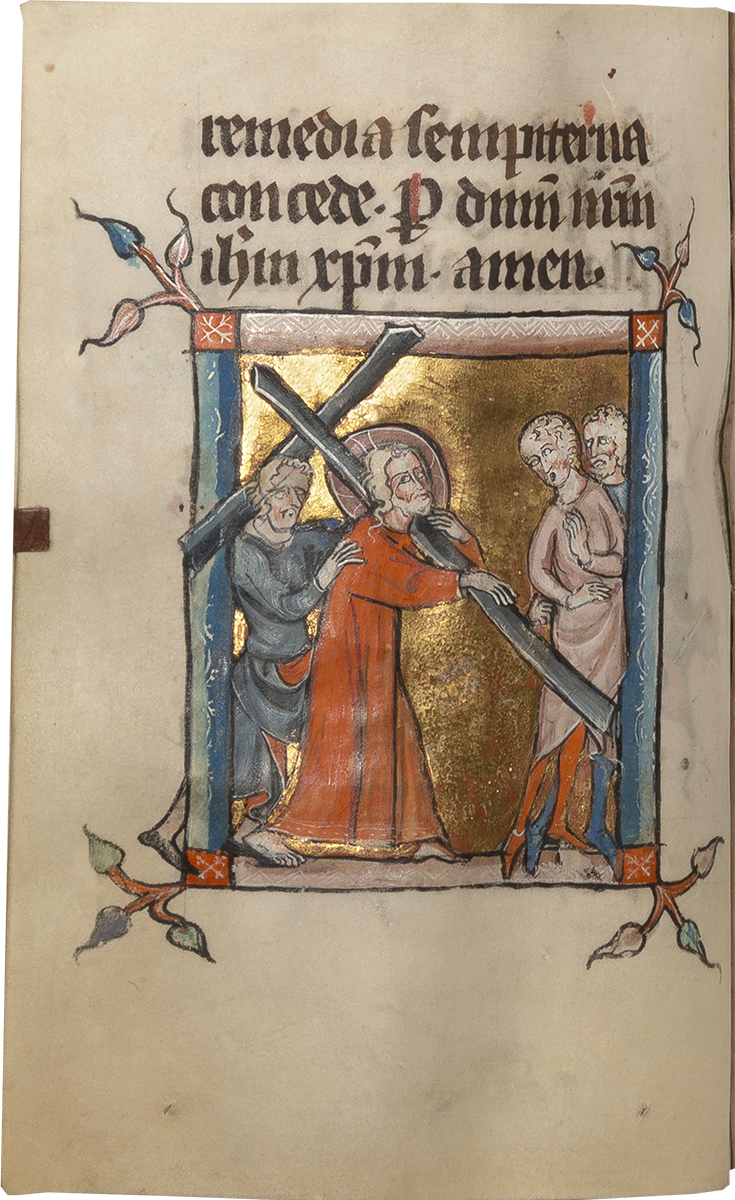 remedia sempiterna
concede. P dnm nrm
ihm xpm. amen.